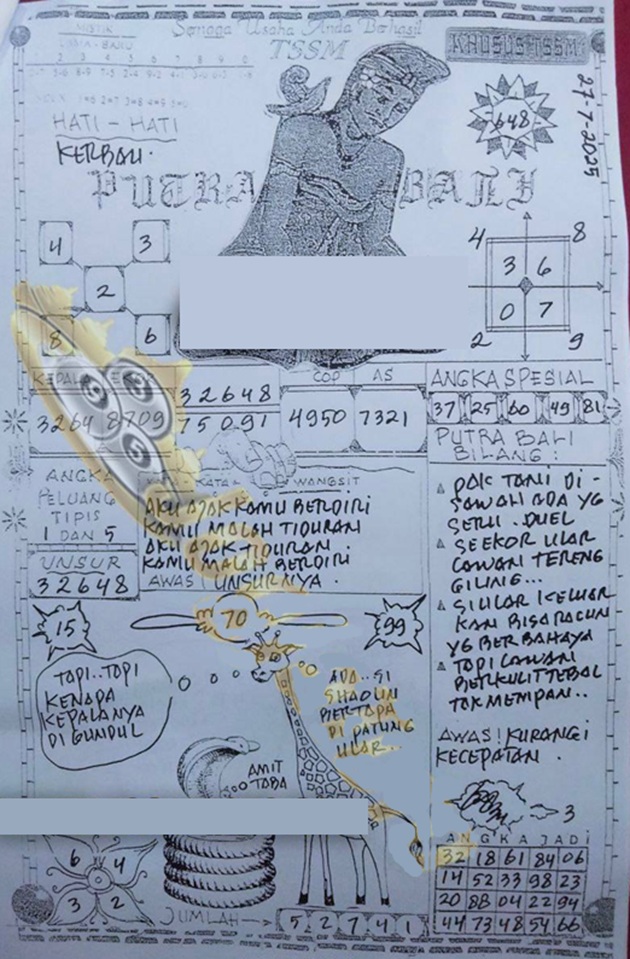 Semoga Usaha Anda Berhasil
TSSM
KHUSUS TSSM
MISTIK
1 2 3 4 5 6 7 8 9 0
HATI - HATI
KERBAU.
648
27-7-2025
PUTRA BALI
4 3
2
8 6
4 8
3 6
0 7
2 9
KEPALA
3264 8709
32648
75091
COP AS
4950 7321
ANGKA SPESIAL
37 25 60 49 81
PUTRA BALI
BILANG :
PAK TANI DI -
SAWAH ADA YG
SERU . DUEL
SEEKOR ULAR
LAWAN TERENG
GILING...
SI ULAR KELUAR
KAN BISA RACUN
YG BERBAHAYA
TAPI LAWAN
BERKULIT TEBAL
TAK MEMPAN..
AWAS! KURANGI
KECEPATAN .
ANGKA
PELUANG
TIPIS
1 DAN 5
KATA WANGSIT
AKU AJAK KAMU BERDIRI
KAMU MALAH TIDURAN
AKU AJAK TIDURAN .
KAMU MALAH BERDIRI
AWAS UNSURNYA .
UNSUR
32648
15
70
99
TAPI..TAPI
KENAPA
KEPALANYA
DI GUNDUL
ADA..SI
SHAOLIN
BERTAPA
DI PATUNG
ULAR..
AMIT
TABA
3
ANGKA JADI
32 18 61 84 06
14 52 33 98 23
20 88 04 22 94
44 73 48 54 66
6 4
3 2
JUMLAH
5 2 7 4 1